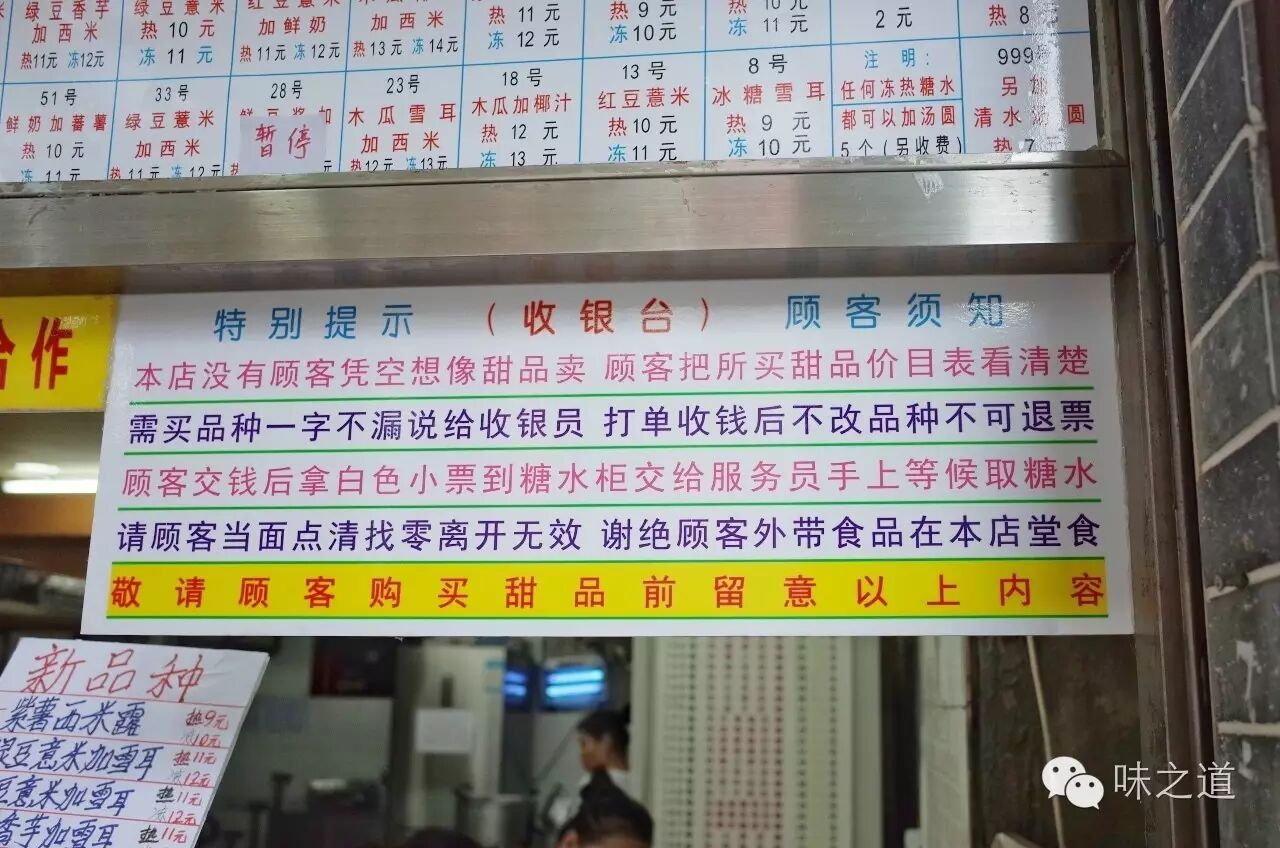 绿豆香芋
加西米
热11元 冻12元
绿豆薏米
热 10 元
冻 11 元
红豆薏米
加鲜奶
热11元 冻12元
木瓜雪耳
加西米
热13元 冻14元
热 11 元
冻 12 元
热 9 元
冻10元
热 10 元
冻 11 元
2 元
热 8
51号
鲜奶加蕃薯
热 10 元
冻 11 元
33号
绿豆薏米
加西米
热11元 冻12元
28号
暂停
23号
木瓜雪耳
加西米
热12元 冻13元
18号
木瓜加椰汁
热 12 元
冻 13 元
13号
红豆薏米
热10 元
冻11 元
8号
冰糖雪耳
热 9 元
冻 10 元
注 明:
任何冻热糖水
都可以加汤圆
5个(另收费)
999号
另加
清水汤圆
热 7
合作
特别提示 (收银台) 顾客须知
本店没有顾客凭空想像甜品卖 顾客把所买甜品价目表看清楚
需买品种一字不漏说给收银员 打单收钱后不改品种不可退票
顾客交钱后拿白色小票到糖水柜交给服务员手上等候取糖水
请顾客当面点清找零离开无效 谢绝顾客外带食品在本店堂食
敬请顾客购买甜品前留意以上内容
新品种
紫薯西米露 热9元
冻10元
绿豆薏米加雪耳 热11元
冻12元
豆薏米加雪耳 热11元
冻12元
香芋加雪耳 热11元
味之道